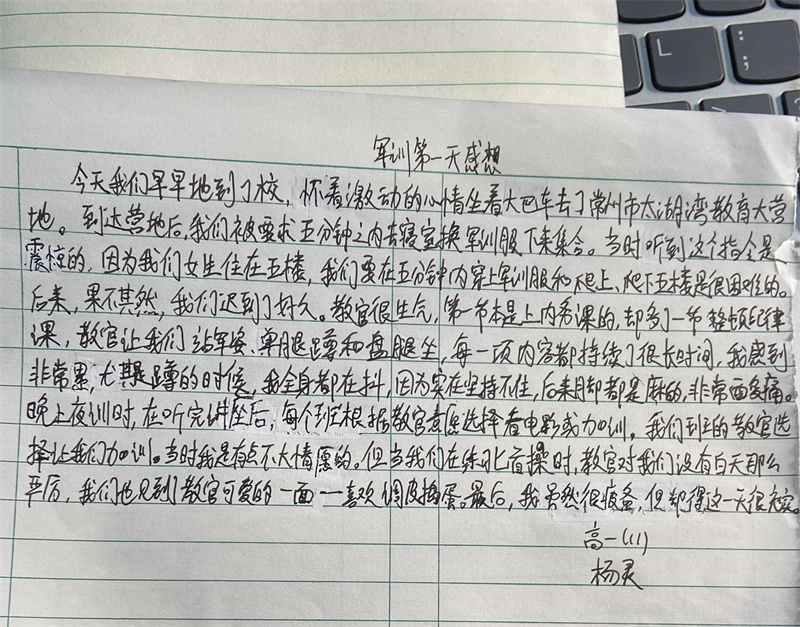 军训第一天感想
今天我们早早地到了校，怀着激动的心情坐着大巴车去了常州市太湖湾教育大营
地。到达营地后，我们被要求五分钟之内去寝室换军训服下来集合。当时听到这个指令是
震惊的，因为我们女生住在五楼，我们要在五分钟内穿上军训服和爬上、爬下五楼是很困难的。
后来，果不其然，我们迟到了好久。教官很生气，第一节本是上内务课的，却多了一节整顿纪律
课，教官让我们站军姿、单腿蹲和盘腿坐，每一项内容都持续了很长时间，我感到
非常累，尤其是蹲的时候，我全身都在抖，因为实在坚持不住，后来脚都是麻的，非常酸痛。
晚上夜训时，在听完讲座后，每个班根据教官意愿选择看电影或加训，我们班的教官选
择让我们加训。当时我是有点不大情愿的。但当我们在练匕首操时，教官对我们没有白天那么
严厉，我们也见到教官可爱的一面——喜欢调皮捣蛋。最后，我虽然很疲惫，但却得这一天很充实。
高一(11)
杨灵
L